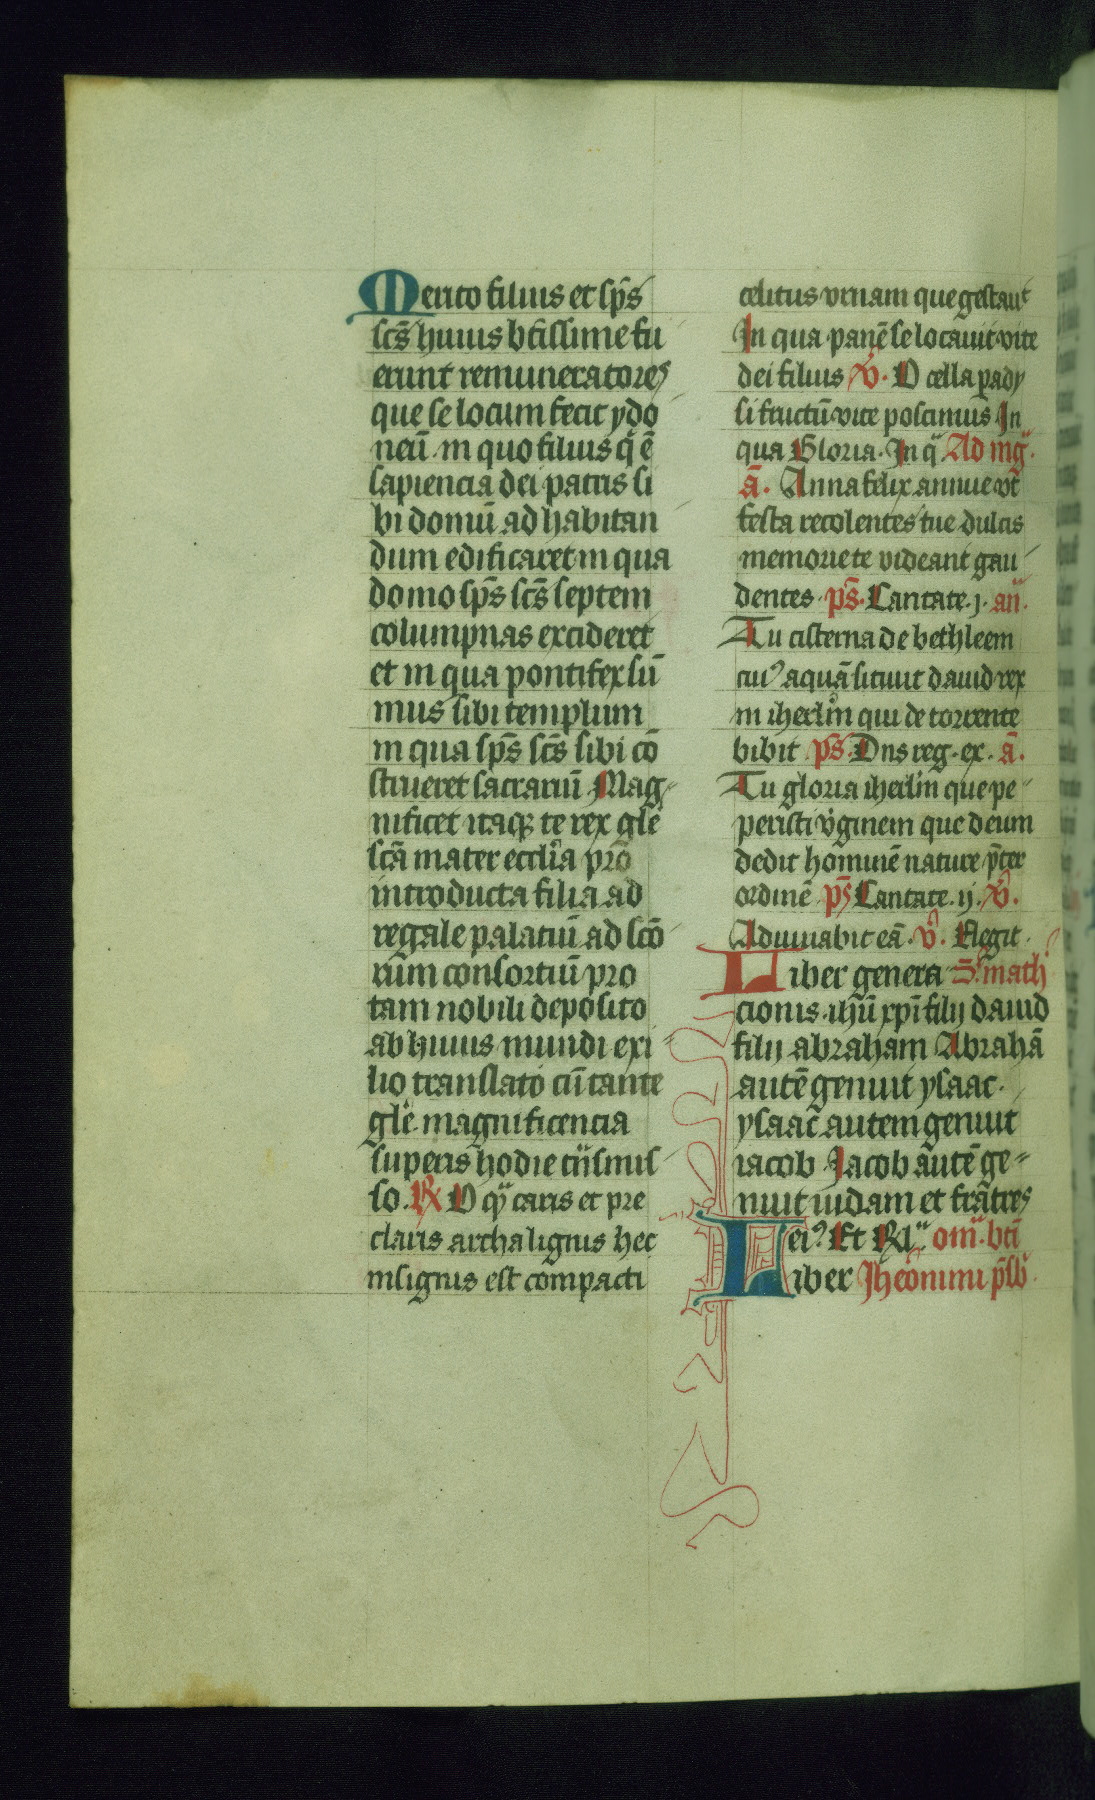 Merito filius et sp̄s
sc̄s huius bt̄issime fu
erunt remuneratores
que se locum fecit ydo
neū in quo filius q̄ ē
sapiencia dei patris si
bi domū ad habitan
dum edificaret in qua
domo sp̄s sc̄s septem
columpnas excideret
et in qua pontifex sū
mus sibi templum
in qua sp̄s sc̄s sibi cō
strueret sacrariū Mag
nificet itaqꝫ te rex gl̄e
sc̄a mater eccl̄ia pro
introducta filia ad
regale palatiū ad sc̄o
rum consortiū pro
tam nobili deposito
ab huius mundi exi
lio translato cū tante
gl̄e magnificencia
superis hodie
so. ℟ O caris et pre
claris archa lignis hec
insignis est compacti
celitus vrnam que gestaut
In qua panē se locauit vite
dei filius ℣. O cella pady
si fructū vite poscimus In
qua Gloria. In q̄ Ad mḡ.
ā. Anna felix annue vt
festa recolentes tue dulcis
memorie te videant gau
dentes. ps̄. Cantate. j. an̄.
Tu cisterna de bethleem
cuiꝰ aquā sitiuit dauid rex
in iherl̄m qui de torrente
bibit ps̄. Dns reg. ex. ā.
Tu gloria iherl̄m que pe
peristi v̓ginem que deum
dedit hominē nature p̄ter
ordinē ps̄ Cantate. ij. ℣.
Adiuuabit eā. ℣. Elegit.
Liber genera S. math
cionis ih̄u xp̄i filij dauid
filij abraham Abrahā
autē genuit ysaac.
ysaac autem genuit
iacob Jacob autē ge
nuit iudam et fratres
eiꝰ Et Rl̄ om̄. bt̄i
Liber Jheronimi p̄sb̄.